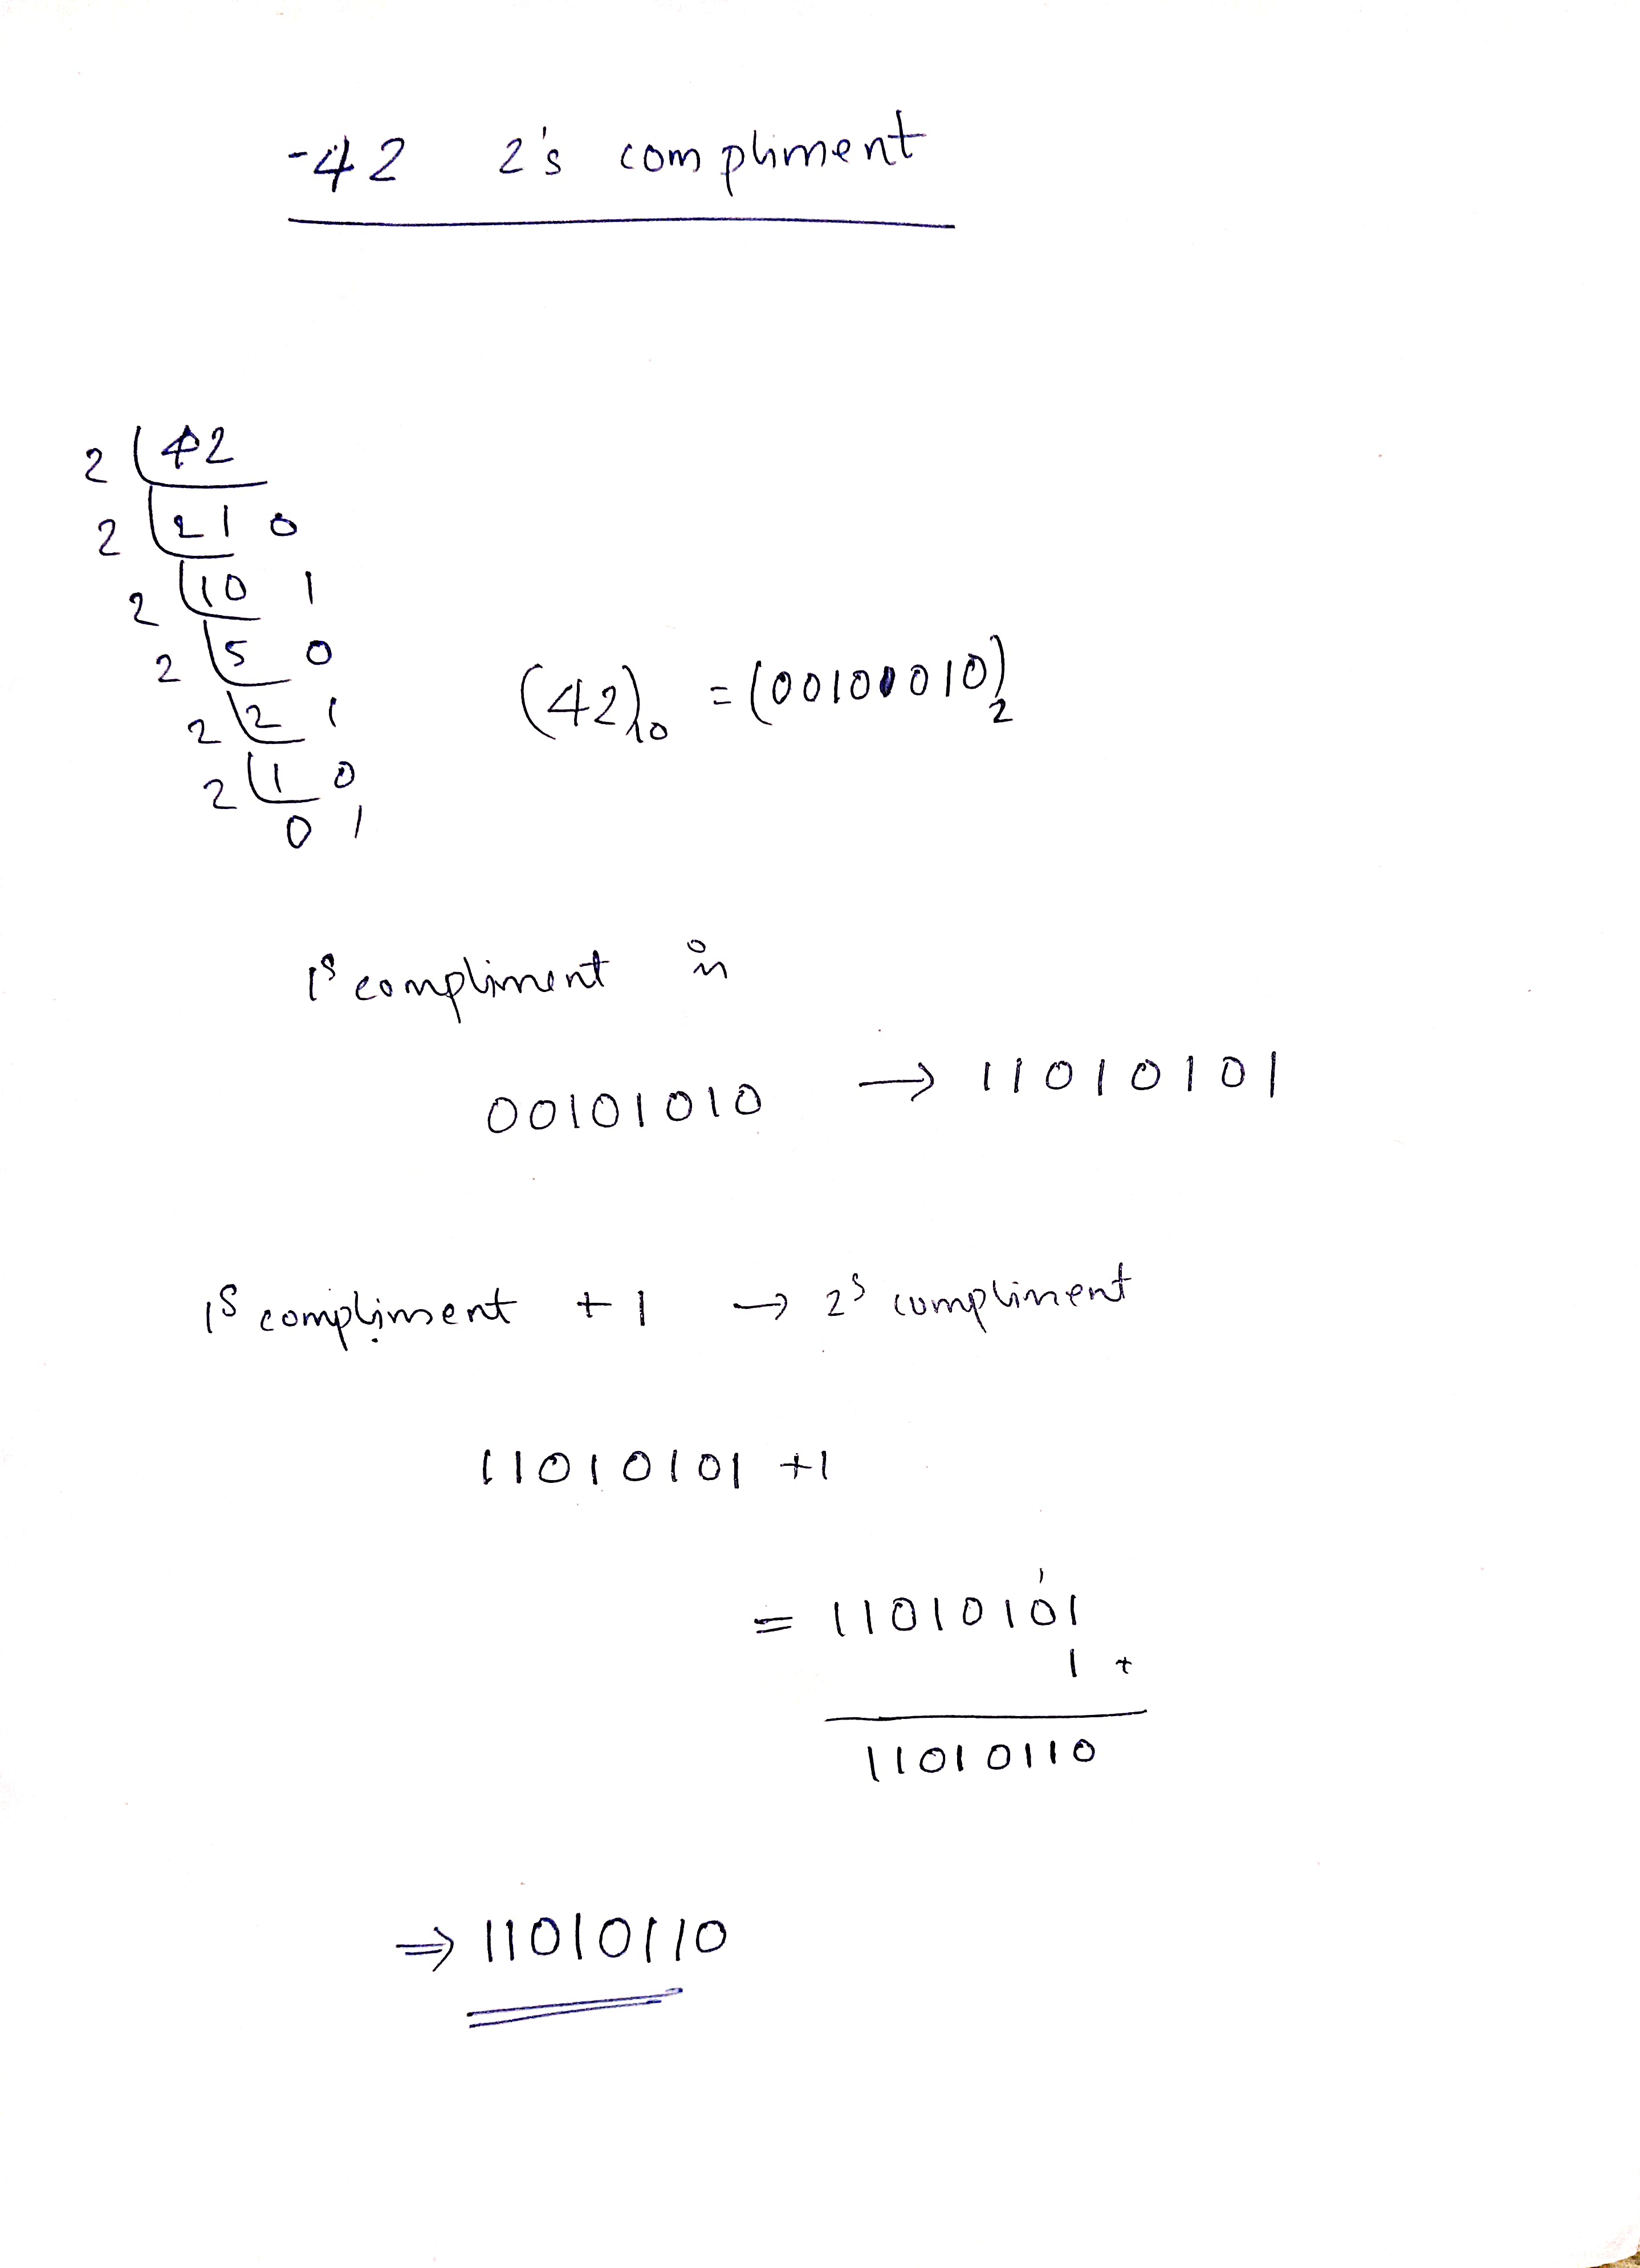 -42 2's compliment
2 42
2 21 0
2 10 1
2 5 0
2 2 1
2 1 0
0 1
(42)10 = (00100010)2
1s compliment is
00101010 → 11010101
1s compliment + 1 → 2s compliment
11010101 +1
1
= 11010101
1 +
11010110
⇒ 11010110